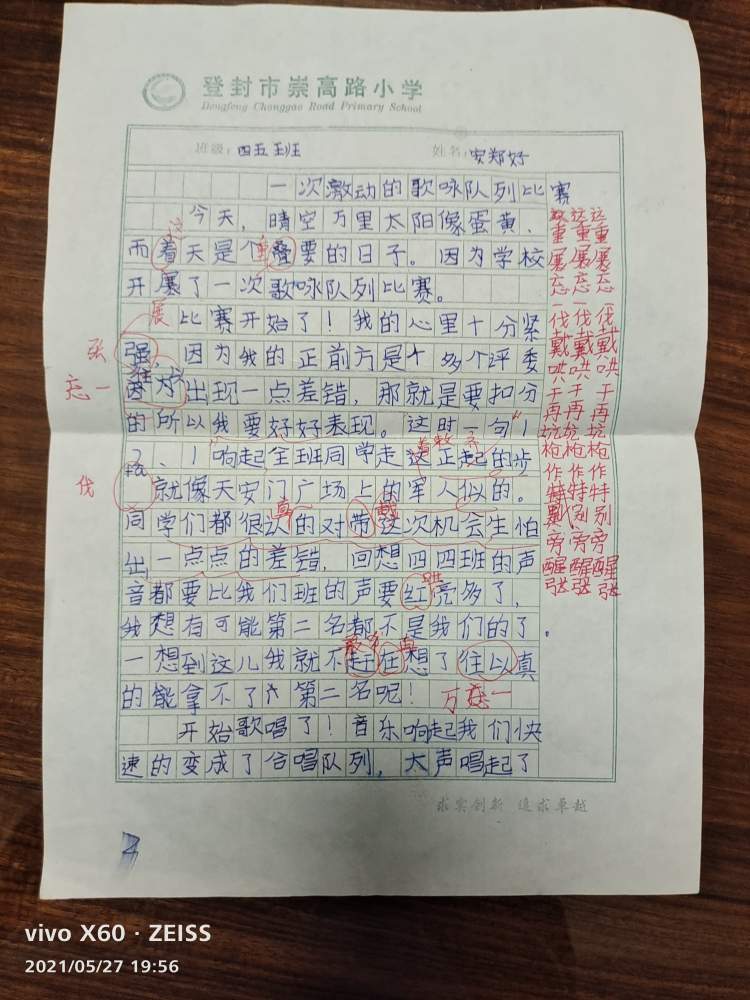 登封市崇高路小学
Dengfeng Chonggao Road Primary School
班级：四五班 姓名：安郑好
一次激动的歌咏队列比赛
今天，晴空万里太阳像蛋黄、
而着天是个叠要的日子。因为学校
开展了一次歌咏队列比赛。
比赛开始了！我的心里十分紧
强，因为我的正前方是十多个评委
出现一点差错，那就是要扣分
的所以我要好好表现。这时一句"1
2、1"响起全班同学走这正起的步
就像天安门广场上的军人似的。
同学们都很次的对带这次机会生怕
出一点点的差错，回想四四班的声
音都要比我们班的声要红亮多了，
我想有可能第二名都不是我们的了。
一想到这儿我就不赶在想了往以真
的能拿不了第二名呢！
开始歌唱了！音乐响起我们快
速的变成了合唱队列，大声唱起了
这
重
展
张
忘一
伐
真
戴
哄
敢
再
万一
这这这
重重重
展展展
忘忘忘
一一一
伐伐伐
戴戴戴
哄哄哄
于于于
再再再
坑坑坑
枪枪枪
作作作
特特特
别别别
旁旁旁
醒醒醒
张张张
求实创新 追求卓越
vivo X60 · ZEISS
2021/05/27 19:56